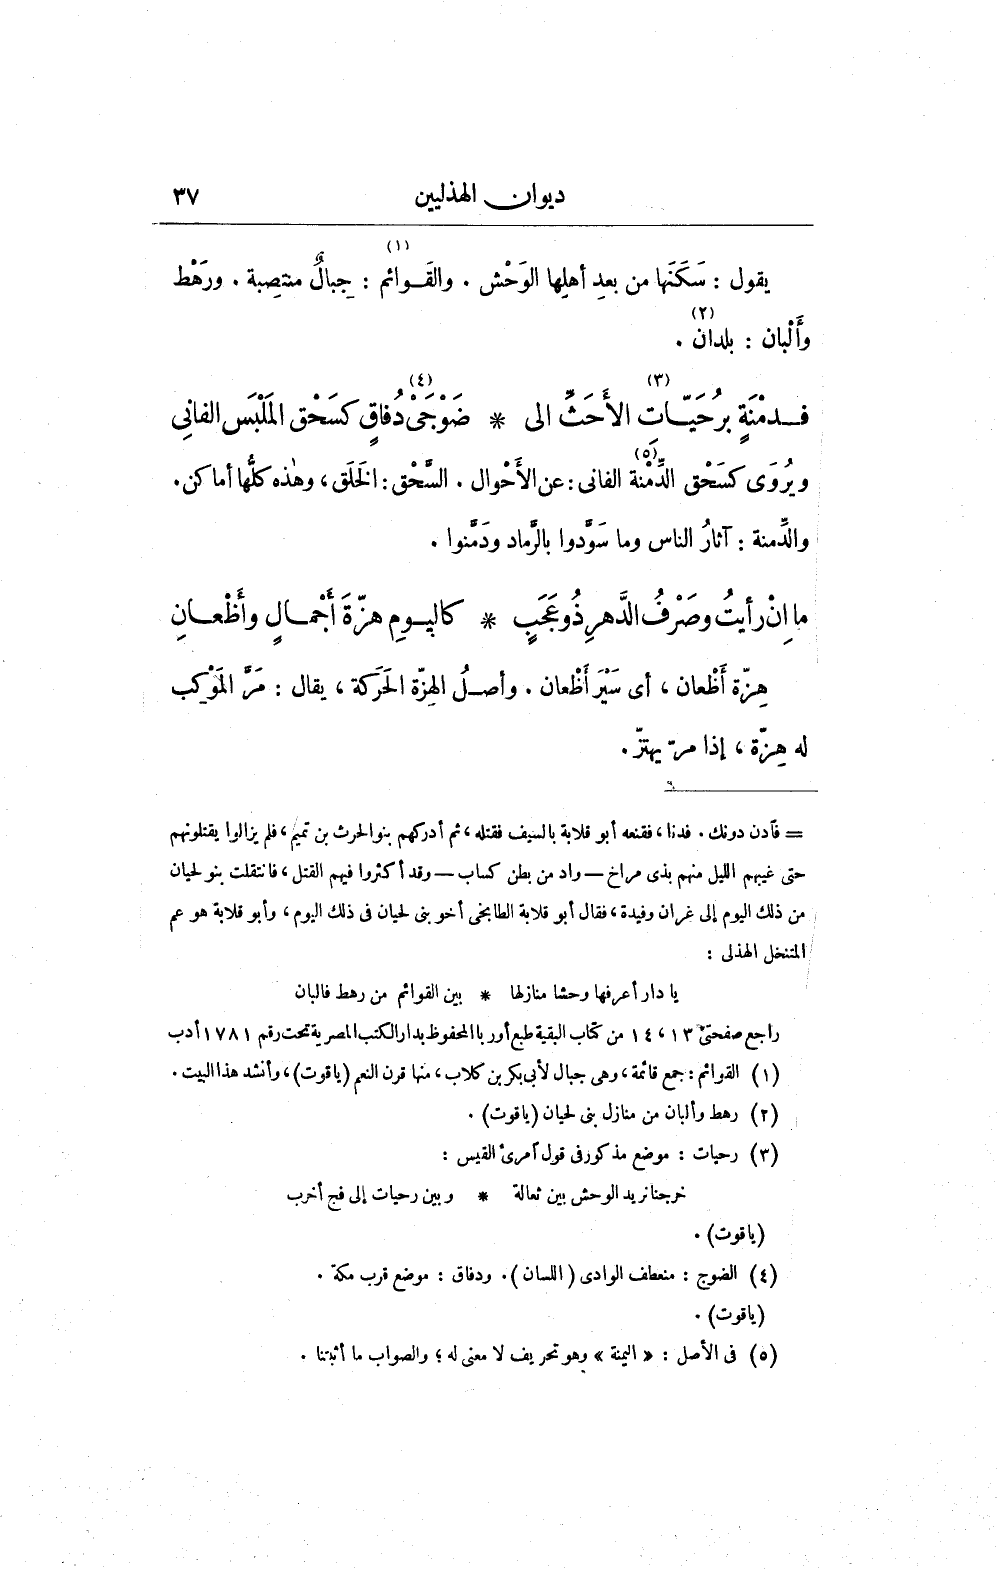 ديوان الهذليين ٣٧
يقول : سَكَنَها من بعدِ أهلِها الوَحْش . والقَوائم (١) : جِبالٌ منتصِبة . ورَهْط
وأَلْبان (٢) : بلدان .
فدِمْنَةٍ برُحَيّاتِ (٣) الأَحَثِّ الى * ضَوْجَىْ (٤) دُفاقٍ كسَحْق المَلْبَس الفانِى
ويُرْوَى كسَحْق الدِّمْنة (٥) الفانى : عن الأَحْوال . السَّحْق : الخَلَق ، وهٰذه كلُّها أماكن .
والدِّمنة : آثارُ الناس وما سَوَّدوا بالرَّماد ودَمَّنوا .
ما إنْ رأيتُ وصَرْفُ الدَّهرِ ذُو عَجَبٍ * كاليومِ هِزّةَ أَجْمالٍ وأَظْعانِ
هِزّة أَظْعان ، أى سَيْرَ أَظْعان . وأصلُ الهِزّة الحَرَكة ، يقال : مَرَّ المَوْكِب
له هِزّة ، إذا مرّ يهتزّ .
= فآدن دونك . فدنا ، فقنعه أبو قلابة بالسيف فقتله ، ثم أدركهم بنو الحرث بن تميم ، فلم يزالوا يقتلونهم
حتى غيبهم الليل منهم بذى مراخ — واد من بطن كساب — وقد أكثروا فيهم القتل ، فانتقلت بنو لحيان
من ذلك اليوم إلى غران وفيدة ، فقال أبو قلابة الطابخى أخو بنى لحيان فى ذلك اليوم ، وأبو قلابة هو عم
المتنخل الهذلى :
يا دار أعرفها وحشا منازلها * بين القوائم من رهط فالبان
راجع صفحتى ١٣ ، ١٤ من كتاب البقية طبع أوربا المحفوظ بدار الكتب المصرية تحت رقم ١٧٨١ أدب
(١) القوائم : جمع قائمة ، وهى جبال لأبى بكر بن كلاب ، منها قرن النعم (ياقوت) ، وأنشد هذا البيت .
(٢) رهط وألبان من منازل بنى لحيان (ياقوت) .
(٣) رحيات : موضع مذكور فى قول آمرئ القيس :
خرجنا نريد الوحش بين ثعالة * وبين رحيات إلى فج أخرب
(ياقوت) .
(٤) الضوج : منعطف الوادى (اللسان) . ودفاق : موضع قرب مكة .
(ياقوت) .
(٥) فى الأصل : « اليمنة » وهو تحريف لا معنى له ؛ والصواب ما أثبتنا .